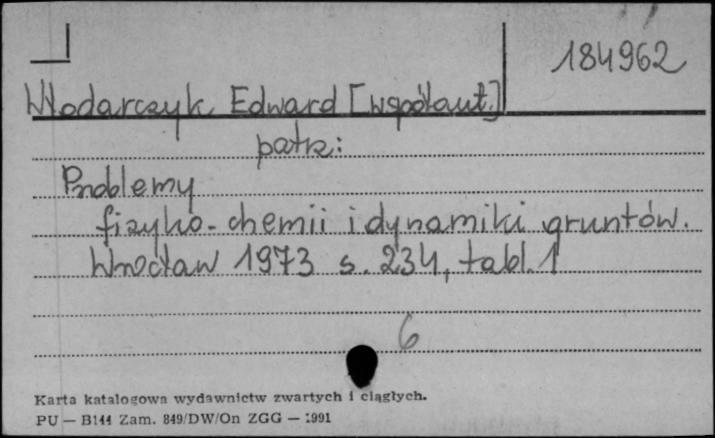 184962
Włodarczyk Edward [współaut.]
patrz:
Problemy
fizyko-chemii i dynamiki gruntów.
Wrocław 1973 s. 234, tabl. 1
6
Karta katalogowa wydawnictw zwartych i ciągłych.
PU — B144 Zam. 849/DW/On ZGG — 1991